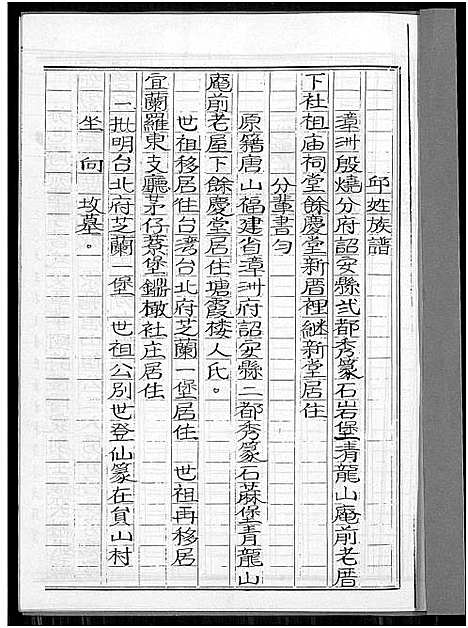 邱姓族譜
漳洲殷燒分府詔安縣弍都秀篆石岩堡青龍山庵前老厝
下社祖庙祠堂餘慶堂新厝裡継新堂居住
分輩書勻
原籍唐山福建省漳洲府詔安縣二都秀篆石蔴堡青龍山
庵前老屋下餘慶堂居住塘霞楼人氏。
世祖移居住台湾台北府芝蘭一堡居住 世祖再移居
宜蘭羅東支廳茅仔藔堡鼎橄社庄居住
一批明台北府芝蘭一堡 世祖公別世登仙篆在貟山村
坐 向 坟墓。